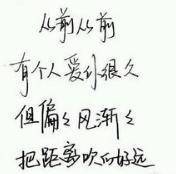 从前从前
有个人爱你很久
但偏偏风渐渐
把距离吹的好远